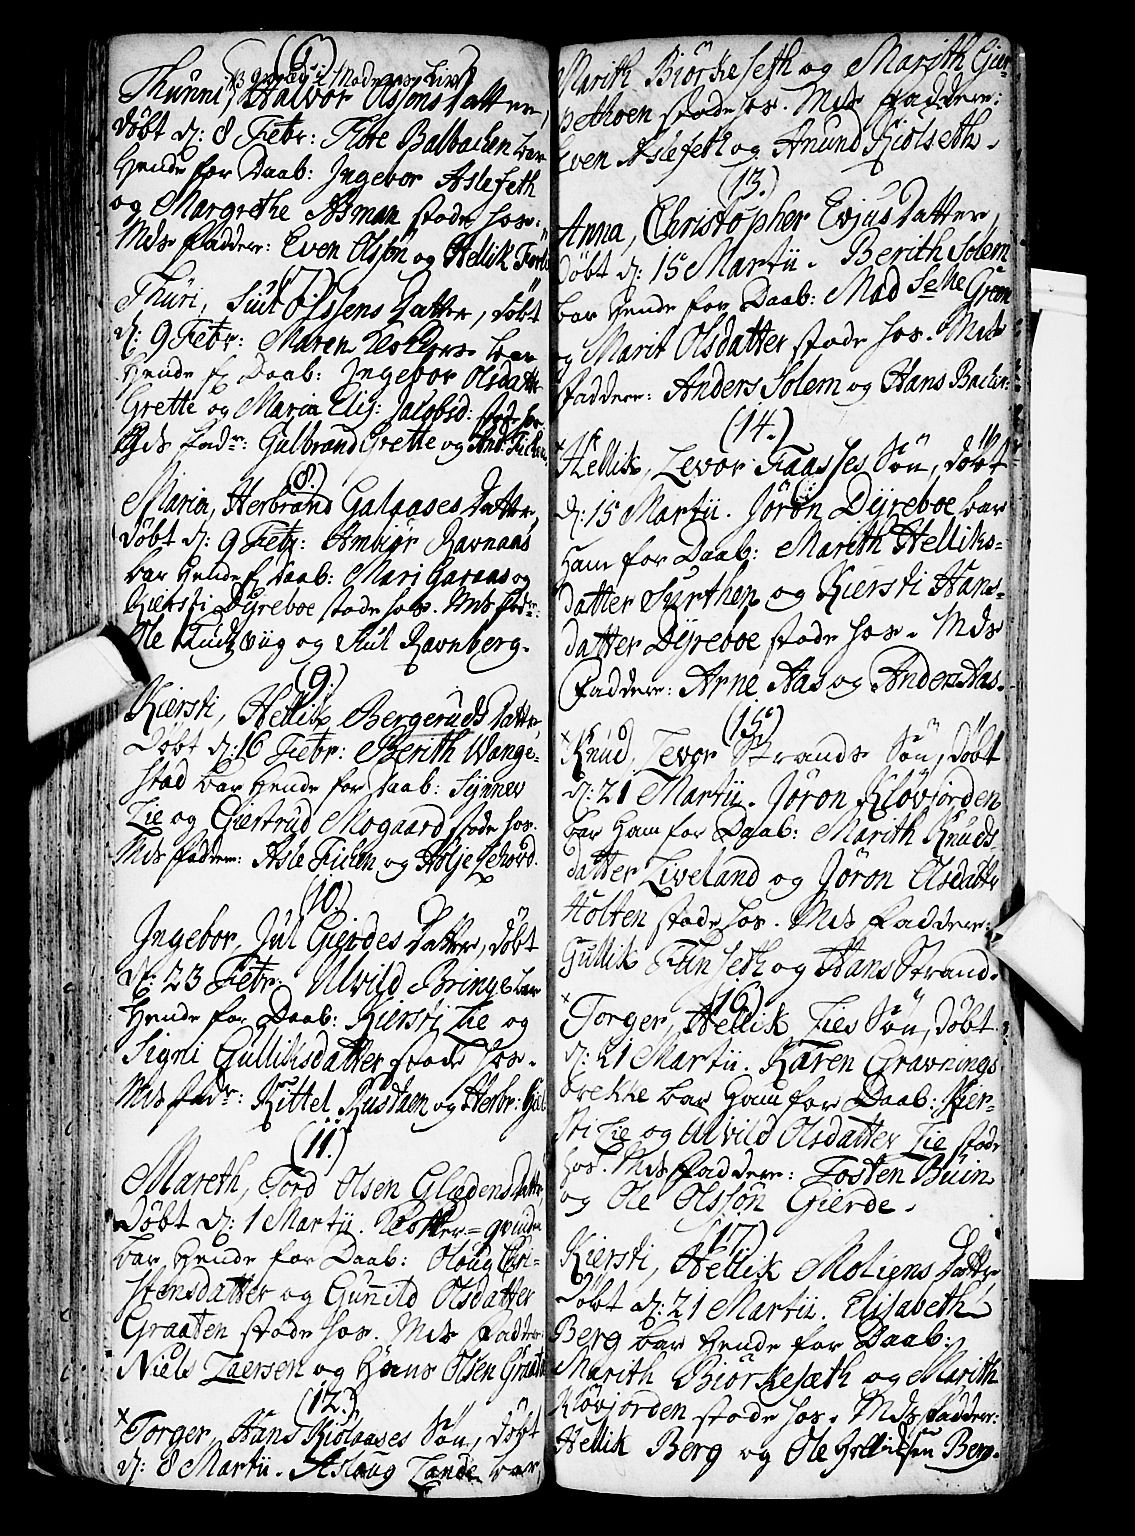 (6.)
Thurni, Halvor Olssøns Datter,
døbt d: 8 Febr: Tore Balbachen bar
hende for Daab: Ingebor Aslefeth
og Margrethe Asman stode hos.
Mds faddere: Even Olssøn og Hellik
(7.)
Thuri, Siul Olssens Datter, døbt
d: 9 Febr: Maren bar
hende f Daab: Ingebor Olsdatter
Grette og Maria Elis: Jacobsd: stod hos
Mds fadr: Gulbrand Grette og And:
(8.)
Maria, Herbrand Galaases Datter,
døbt d: 9 Febr: Ambiør Ravnaas
bar hende f Daab: Mari Garaas og
Kiersti Dyreboe stode hos. Mds fadr:
Ole og Siul Ravnberg.
(9.)
Kiersti, Hellik Bergeruds Datter
Døbt d: 16 Febr: Berith Wange-
stad bar hende for Daab: Synnev
Lie og Giertrud Mogaard stode hos.
Mds faddere: Asle Ficken og Holje Lehovd.
(10.)
Ingebor, Jul Gierdes Datter, døbt
d: 23 Febr: Ulvild Bringe bar
hende for Daab: Kiersti Lie og
Signi Gulliksdatter stode hos.
Mds fadr: Kittel Rustaen og Herbr: Gul
(11.)
Mareth, Tord Olsen Glædens Datter
Døbt d: 1 Martii. qvinde
bar hende for Daab: Oloug Chri-
stensdatter og Gunild Olsdatter
Graaten stode hos. Mds Fadder:
Niels Laersen og Hans Olsen Graaten
(12.)
Torger, Hans Kiolaases Søn, døbt
d: 8 Martii. Aslaug Lande bar
Marith Biørkeseth og Marith Gier-
pethven stode hos. Mds Faddere:
Even Aslefeth og Anund Kiølseth.
(13.)
Anna, Christopher Evjus Datter,
døbt d: 15 Martii. Berith Solem
bar hende for Daab: Mad Selle Green
og Marit Olsdatter stode hos. Mds
faddere: Anders Solem og Hans Bacher:
(14.)
Hellik, Levor Faasses Søn, døbt
d: 15 Martii. Jørøn Dyreboe bar
ham for Daab: Marith Helliks-
datter Surthen og Kiersti Hans-
datter Dyreboe stode hos. Mds
Faddere: Arne Aas og Anders Aas.
(15)
Knud, Levor Strands Søn, døbt
d: 21 Martii. Jøron Kløvjorden
bar ham for Daab: Marith Knuds-
datter Liveland og Jøron Olsdatter
Holten stode hos. Mds Faddere:
Gullik Funseth og Hans Strand.
(16)
Torger, Hellik Lies Søn, døbt
d: 21 Martii. Karen Gravnings
brekke bar ham for Daab: Kier-
sti Lie og Ulvild Olsdatter Lie stode
hos. Mds Faddere: Tosten Buin
og Ole Olssøn Gierde.
(17)
Kiersti, Hellik Moliens Datter
Døbt d: 21 Martii. Elisabeth
Berg bar hende for Daab:
Marith Biørkesæth og Marith
Kløvjorden stode hos. Mds Fadder:
Hellik Berg og Ole Hellichsen Berg.